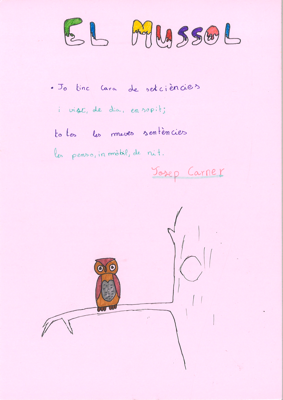 EL MUSSOL
• Jo tinc cara de setciències
i visc, de dia, ensopit;
totes les meves sentències
les penso, immòbil, de nit.
Josep Carner